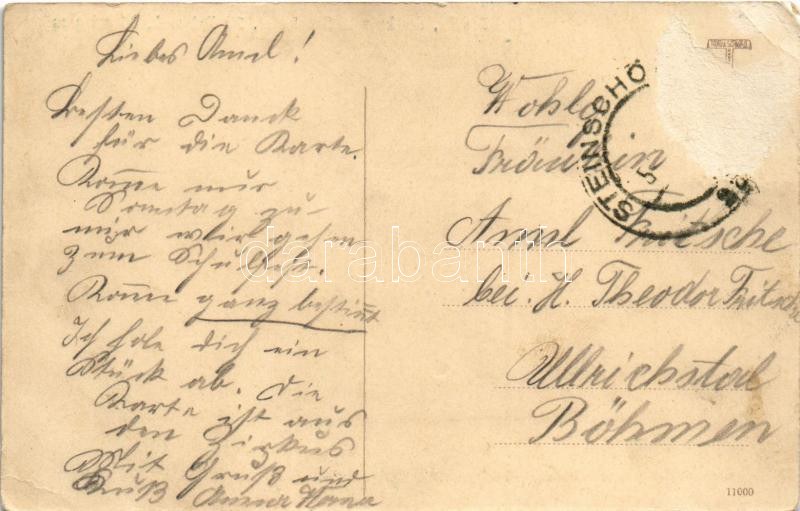 Liebes Aml!
Besten Danck
für die Karte.
Komme nur
Sonntag zu-
mir wir gehen
zum Schulfest.
Komme ganz bestimmt
Ich hole dich ein
Stück ab. Die
Karte ist aus
den Zirkus
Mit Gruß und
Kuß Anna
STEINSCHÖ
5
Wohlg
Fräulein
Aml Fritsche
bei. H. Theodor Fritsche
Ullrichstal
Böhmen
11000
darabanth